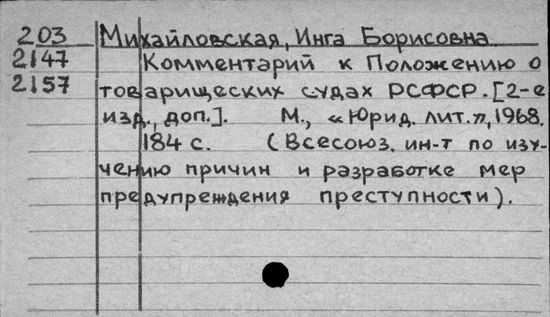 203 Михайловская, Инга Борисовна
2147 Комментарий к Положению о
2157 товарищеских судах РСФСР. [2-е
изд., доп.]. М., «Юрид. лит.», 1968.
184 с. (Всесоюз. ин-т по изу-
чению причин и разработке мер
предупреждения преступности).